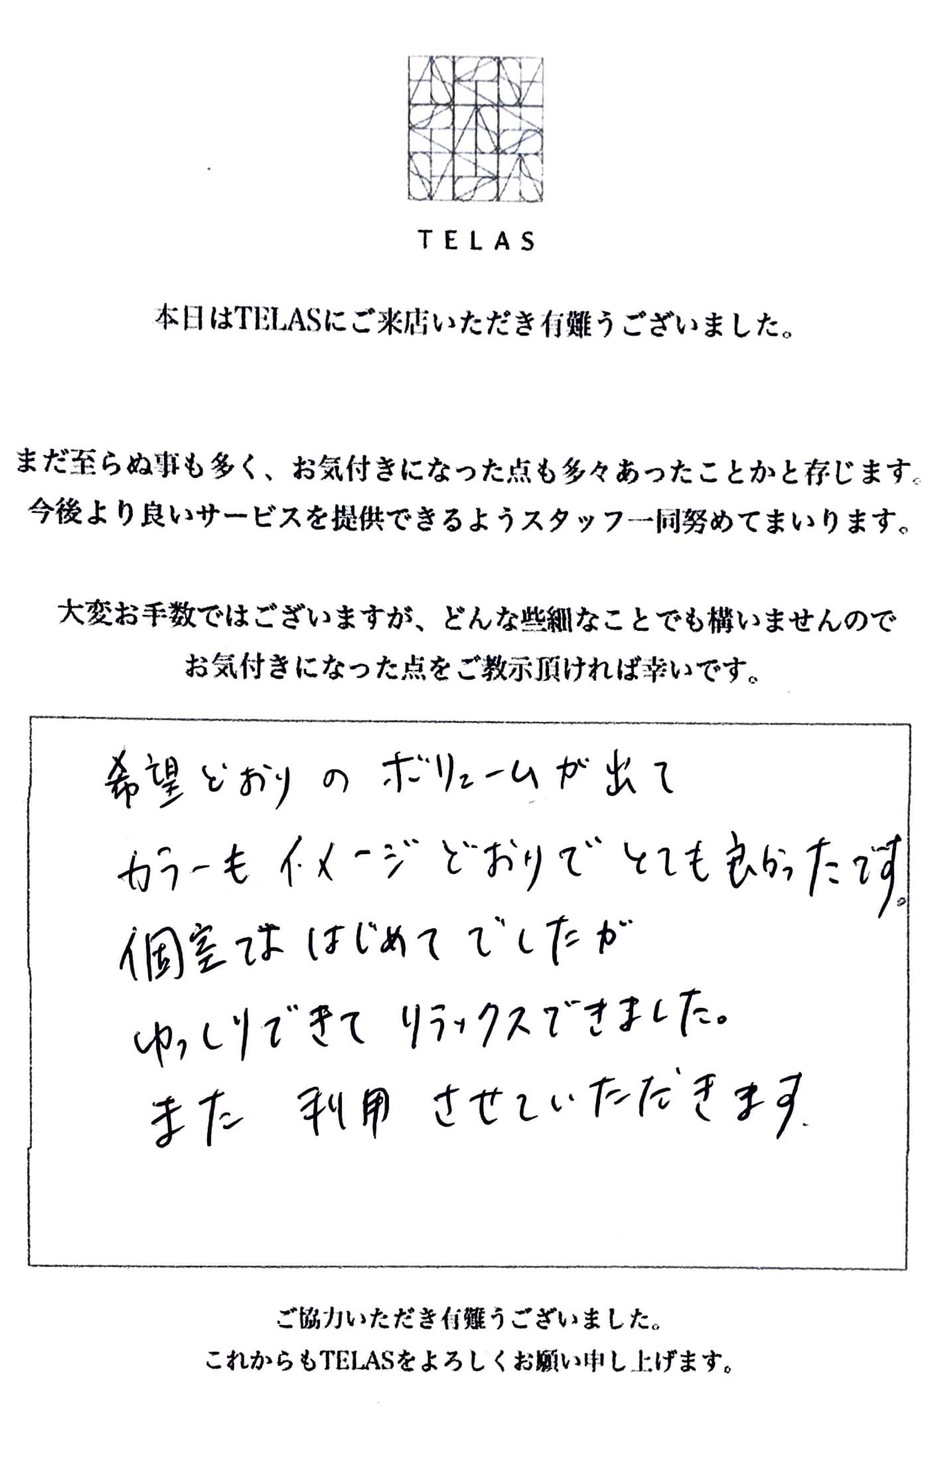 TELAS
本日はTELASにご来店いただき有難うございました。
まだ至らぬ事も多く、お気付きになった点も多々あったことかと存じます。
今後より良いサービスを提供できるようスタッフ一同努めてまいります。
大変お手数ではございますが、どんな些細なことでも構いませんので
お気付きになった点をご教示頂ければ幸いです。
希望どおりのボリュームが出て
カラーもイメージどおりでとても良かったです。
個室でははじめてでしたが
ゆっくりできてリラックスできました。
また利用させていただきます.
ご協力いただき有難うございました。
これからもTELASをよろしくお願い申し上げます。